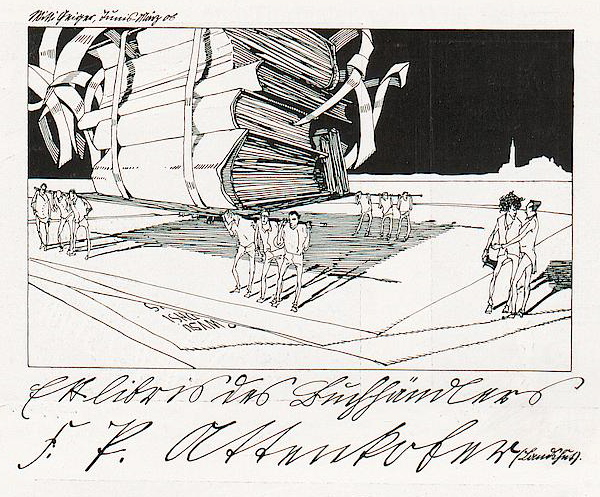 Willi Geiger, Tunis März 06
Exlibris des Buchhändlers
F. P. Attenkofer (Landshut).